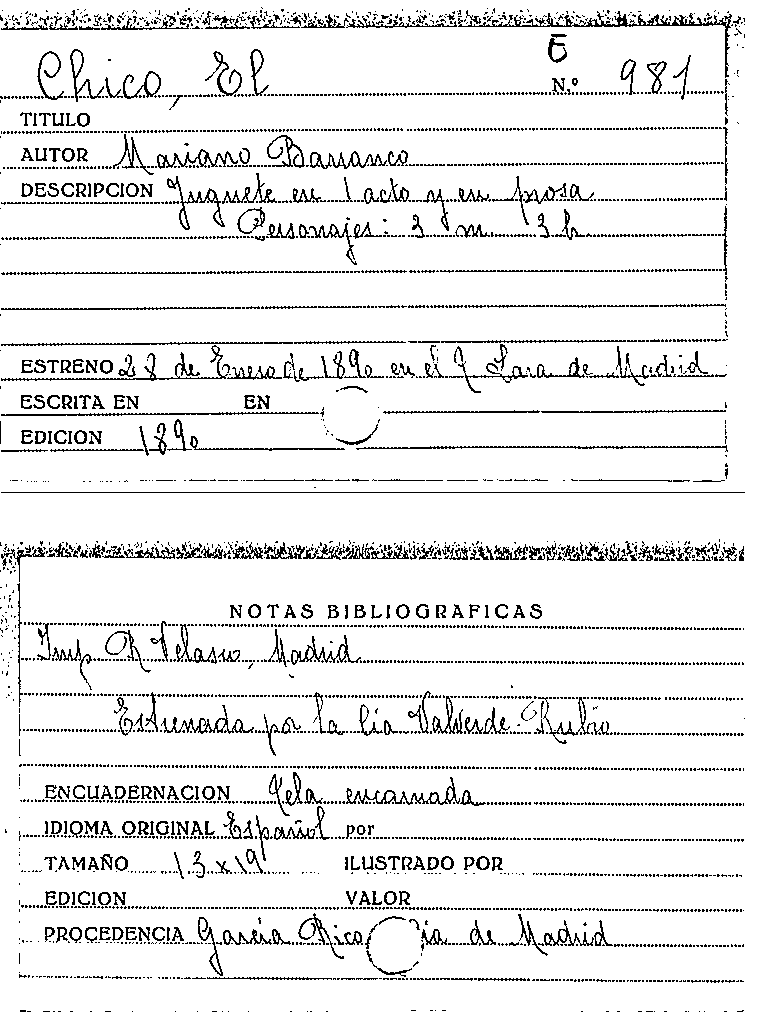 Chico, El
E
N.º 981
TITULO
AUTOR Mariano Barranco
DESCRIPCION Juguete en 1 acto y en prosa
Personajes: 3 m. 3 h
ESTRENO 28 de Enero de 1890 en el T Lara de Madrid
ESCRITA EN EN
EDICION 1890
NOTAS BIBLIOGRAFICAS
Imp R Velasco, Madrid
Estrenada por la Cía Valverde-Rubio
ENCUADERNACION Tela encarnada
IDIOMA ORIGINAL Español por
TAMAÑO 13x19 ILUSTRADO POR
EDICION VALOR
PROCEDENCIA García Rico de Madrid